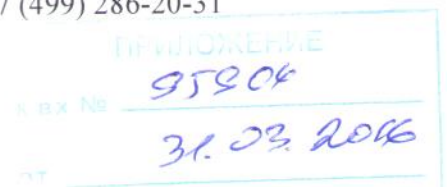 7 (499) 286-20-31
ПРИЛОЖЕНИЕ
к вх № 95904
от 31.03.2016